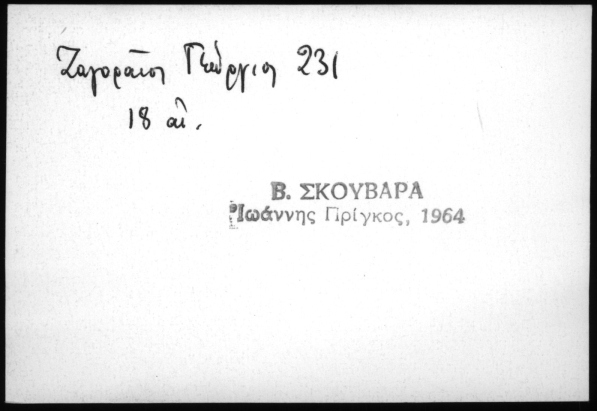 Ζαγοραῖος Γεώργιος 231
18 αἰ.
Β. ΣΚΟΥΒΑΡΑ
Ἰωάννης Πρίγκος, 1964